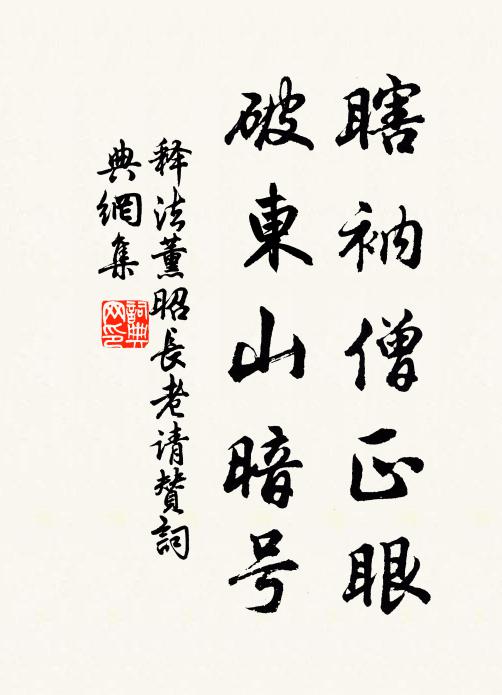 瞎衲僧正眼
破東山暗号
释法薰昭長老请賛詞
典網集
詞典
网印